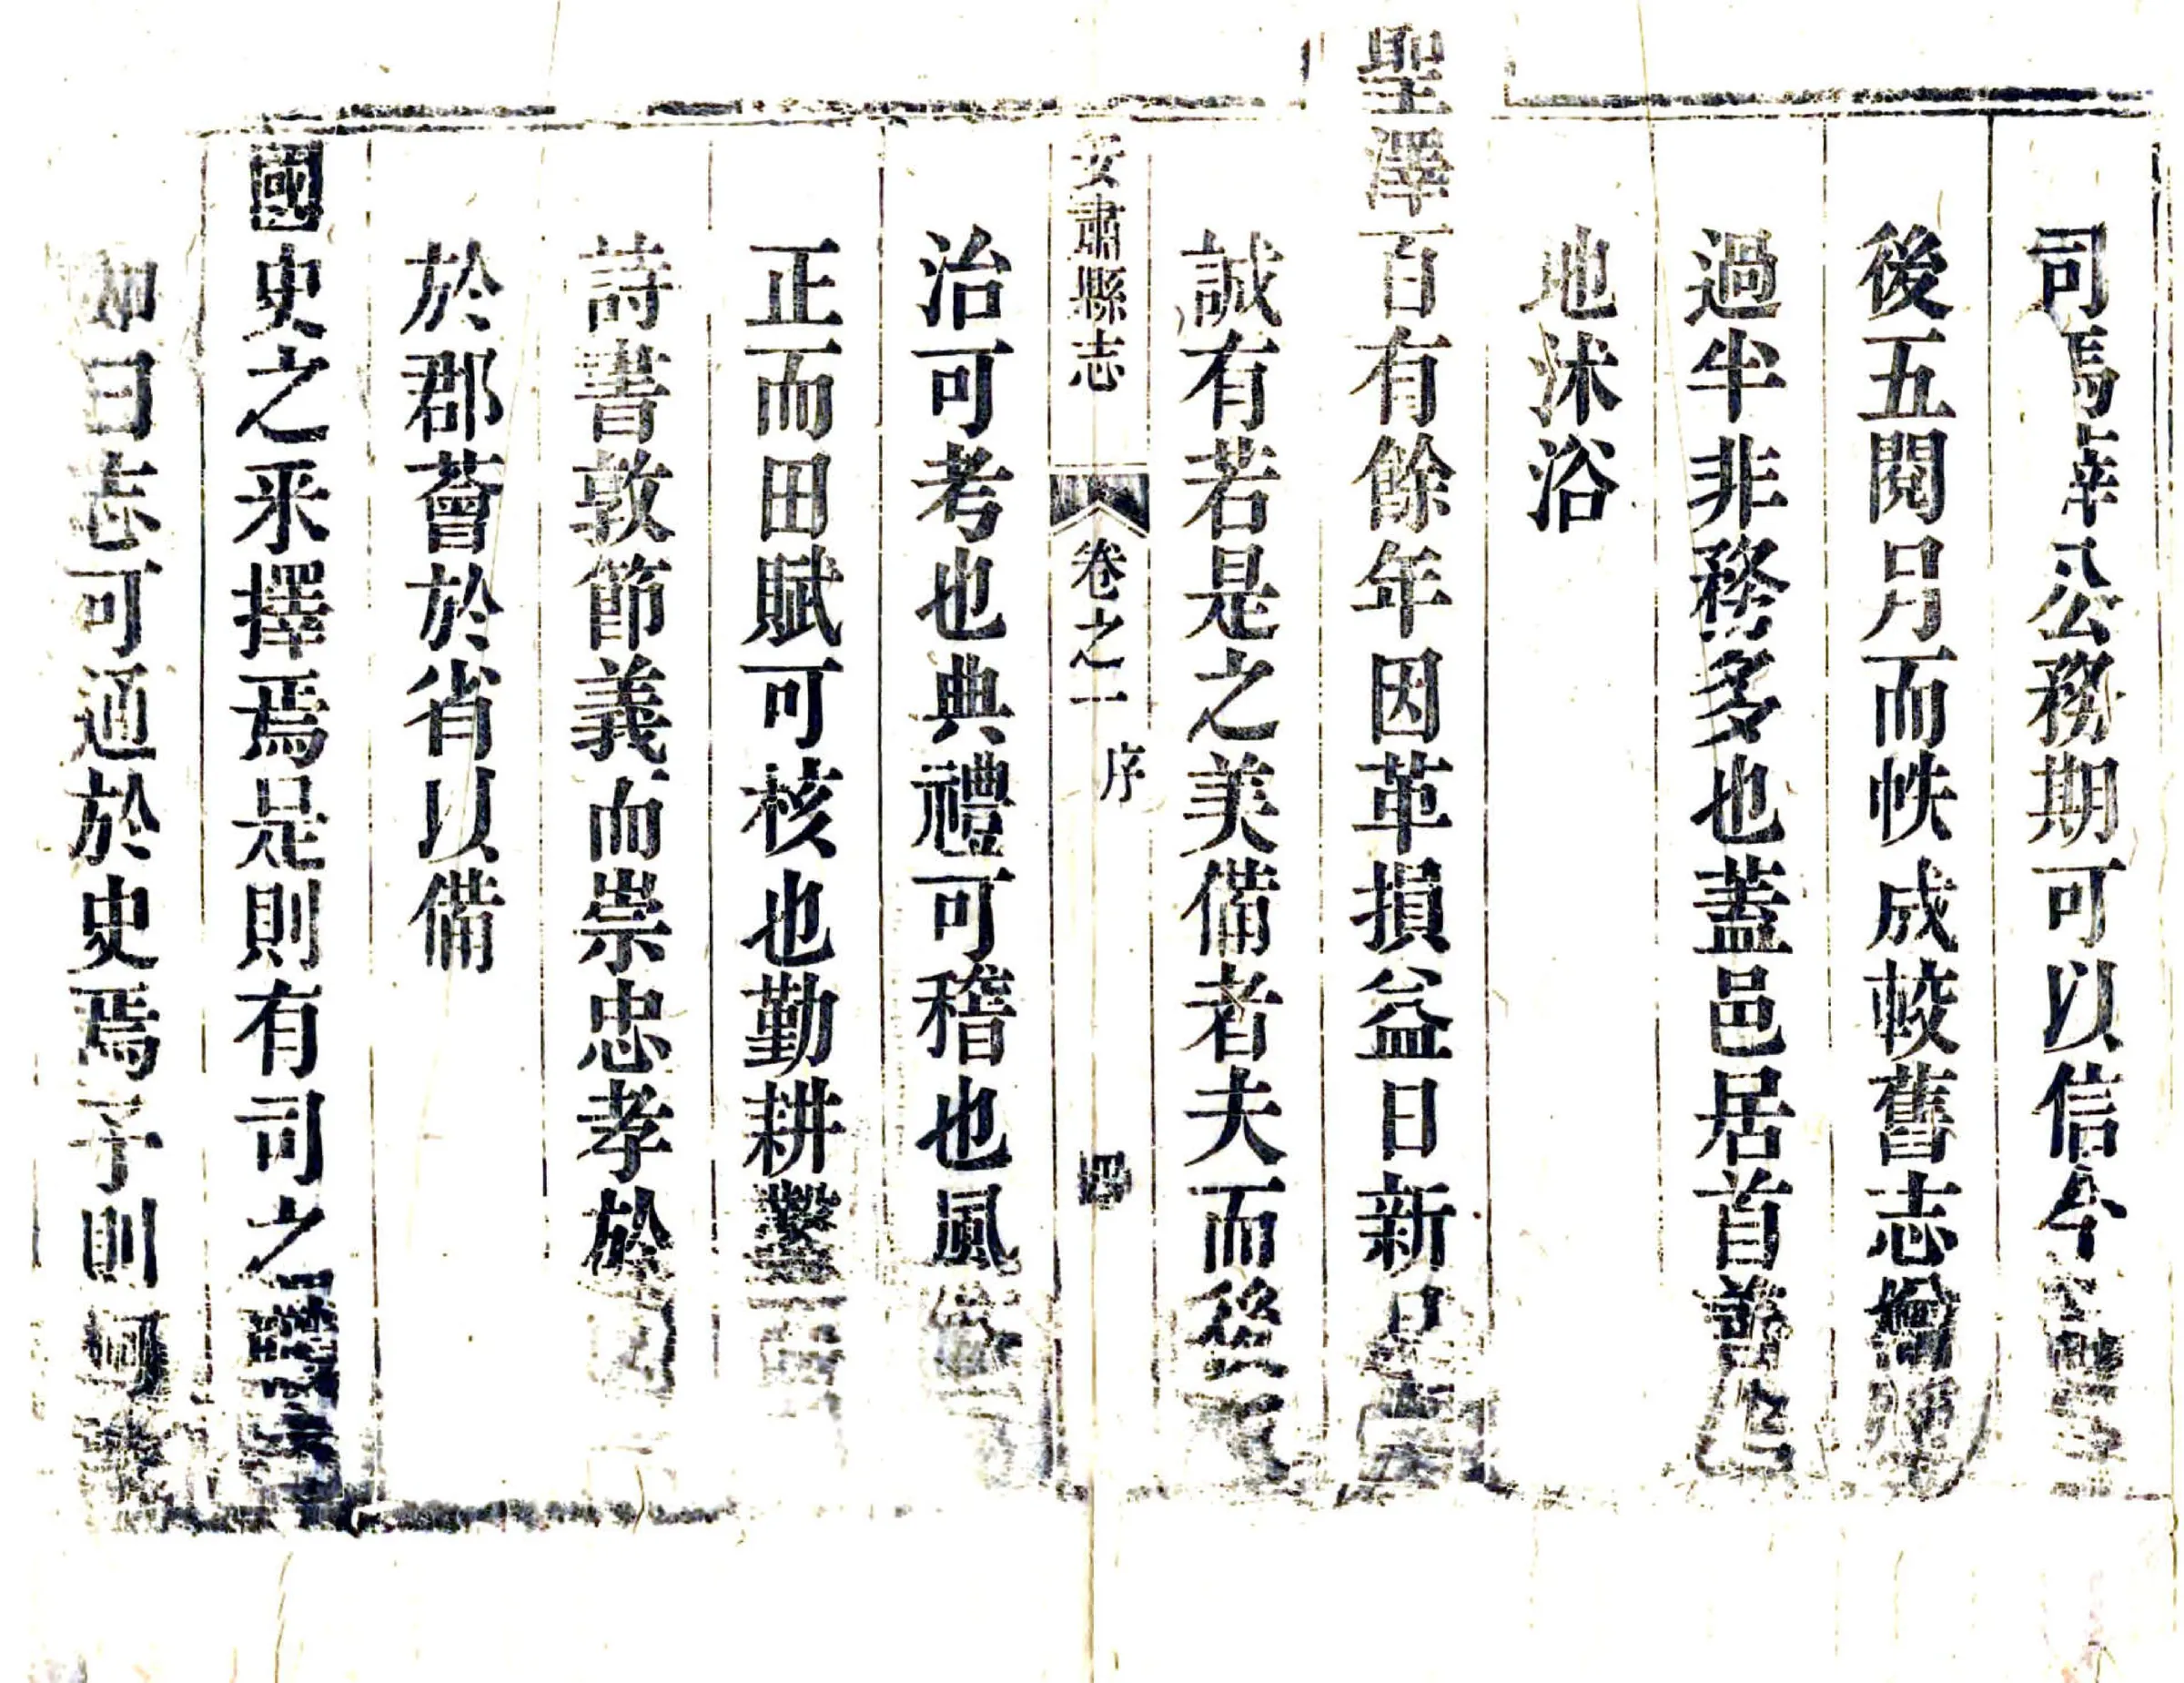 司馬辛公務期可以信今
後五閱月而帙成較舊志增
過半非務多也蓋邑居首善
地沐浴
聖澤百有餘年因革損益日新
誠有若是之美備者夫而後
安肅縣志 卷之一 序 四
治可考也典禮可稽也風
正而田賦可核也勤耕鑿
詩書敦節義而崇忠孝於
於郡薈於省以備
國史之采擇焉是則有司之
如曰志可通於史焉予則